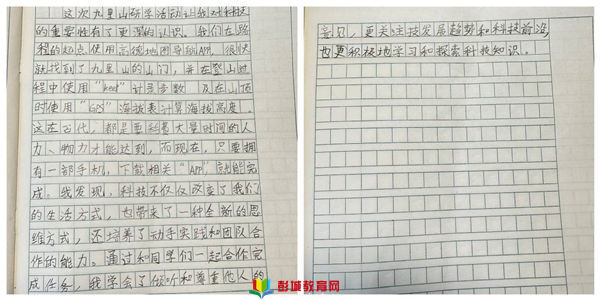 这次九里山研学活动让我对科技
的重要性有了更深的认识。我们在路
程的起点使用高德地图导航APP，很快
就找到了九里山的山门，并在登山过
程中使用“keep”计录步数，及在山顶
时使用“GPS”海拔表计算海拔高度。
这在古代，都是要耗费大量时间的人
力、物力才能达到，而现在，只要拥
有一部手机，下载相关“APP”，就能完
成。我发现，科技不仅仅改变了我们
的生活方式，也带来了一种全新的思
维方式，还培养了动手实践和团队合
作的能力。通过和同学们一起合作完
成任务，我学会了倾听和尊重他人的
意见，更关注科技发展趋势和科技前沿，
也更积极地学习和探索科技知识。
彭城教育网